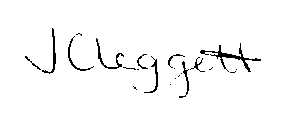 J Cleggett